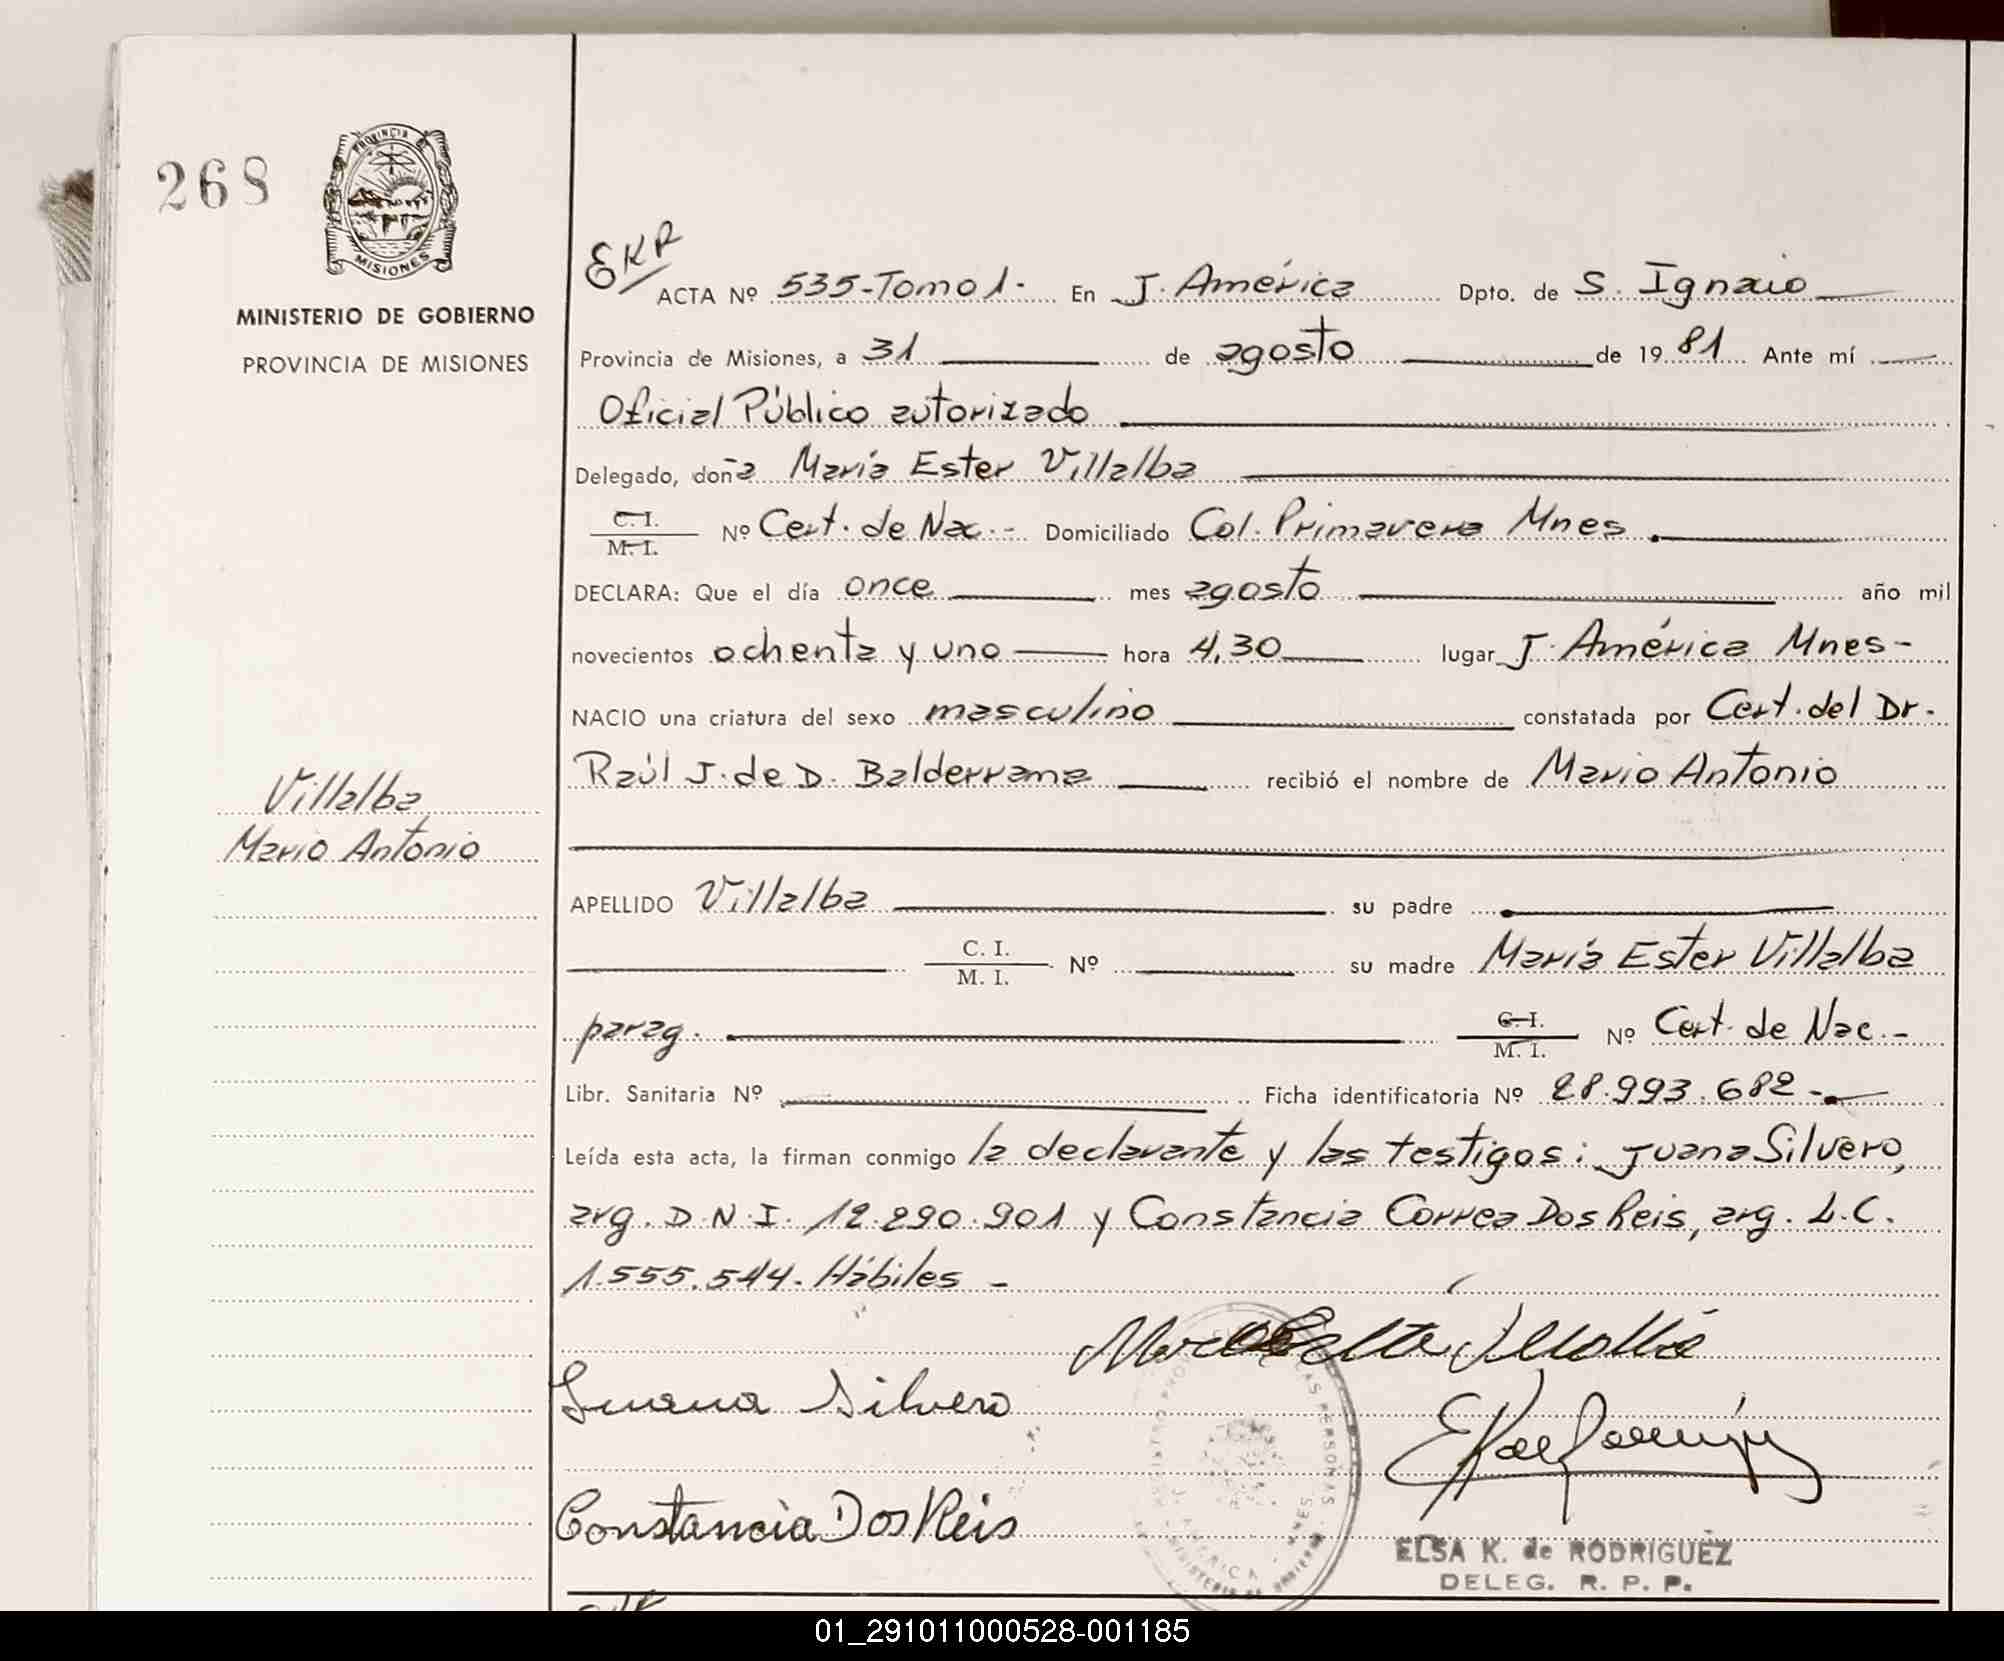 268
PROVINCIA DE
MISIONES
MINISTERIO DE GOBIERNO
PROVINCIA DE MISIONES
Villalba
Mario Antonio
EKR
ACTA Nº 535-Tomo 1- En J. América Dpto. de S. Ignacio
Provincia de Misiones, a 31 de agosto de 1981 Ante mí
Oficial Público autorizado
Delegado, doña María Ester Villalba
C. I. / M. I. Nº Cert. de Nac.- Domiciliado Col. Primavera Mnes.
DECLARA: Que el día once mes agosto año mil
novecientos ochenta y uno hora 4,30 lugar J. América Mnes-
NACIO una criatura del sexo masculino constatada por Cert. del Dr.
Raúl J. de D. Balderrama recibió el nombre de Mario Antonio
APELLIDO Villalba su padre
C. I. / M. I. Nº su madre María Ester Villalba
parag. C. I. / M. I. Nº Cert. de Nac.-
Libr. Sanitaria Nº Ficha identificatoria Nº 28.993.682-
Leída esta acta, la firman conmigo la declarante y las testigos: Juana Silvero,
arg. D.N.I. 12.290.901 y Constancia Correa Dos Reis, arg. L.C.
1.555.544. Hábiles -
Juana Silvero
Constancia Dos Reis
ELSA K. de RODRIGUEZ
DELEG. R. P. P.
01_291011000528-001185